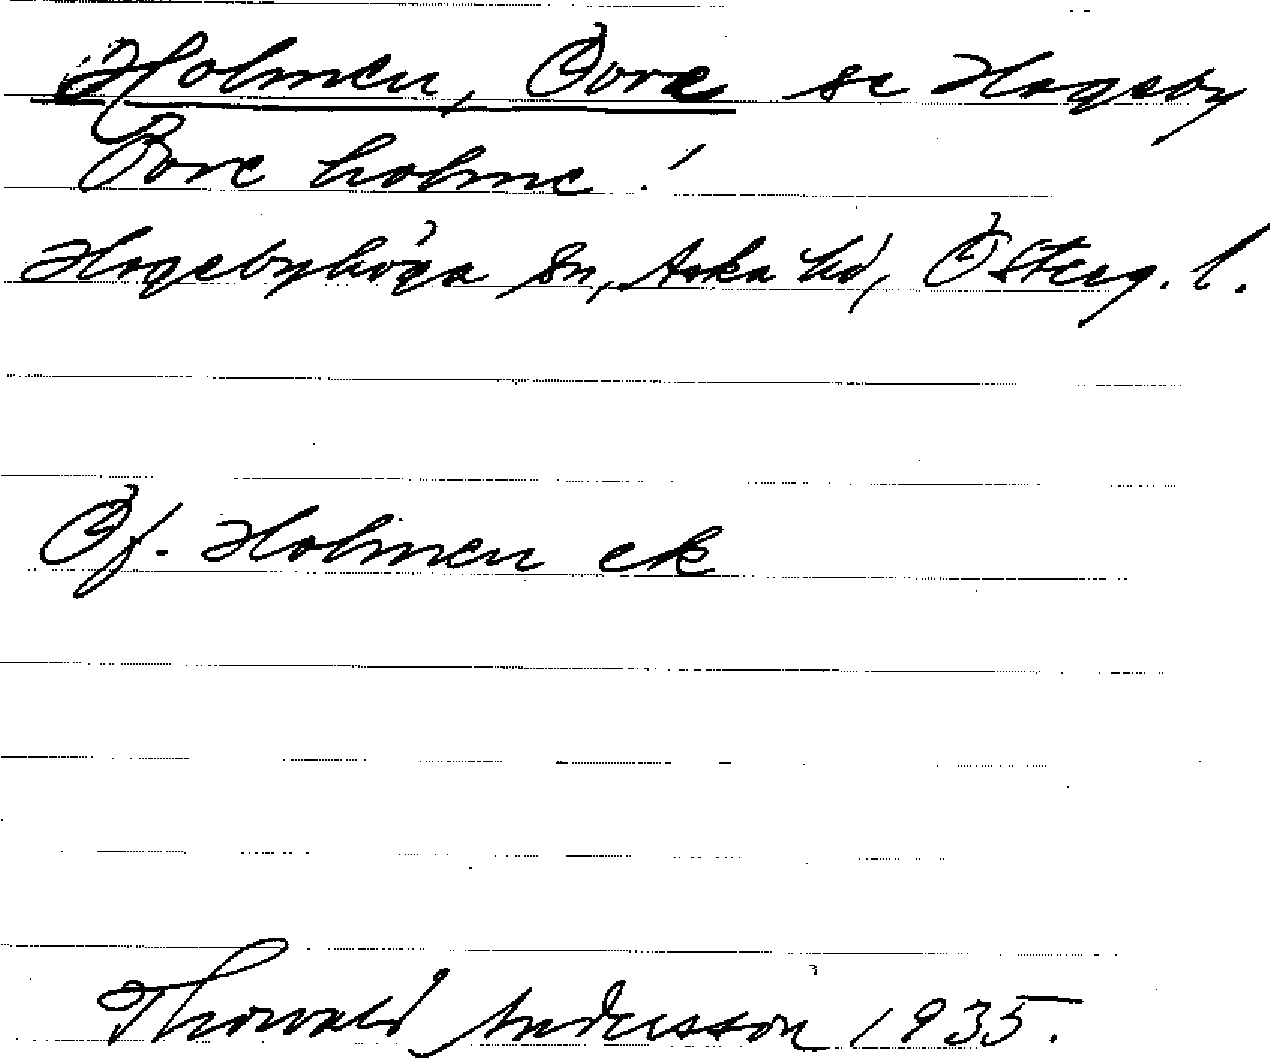 Holmen, Övre se Hageby
Övre holme!
Hagebyhöga sn, Aska hd, Österg. l.
Öf. Holmen ek
Thorvald Andersson 1935.